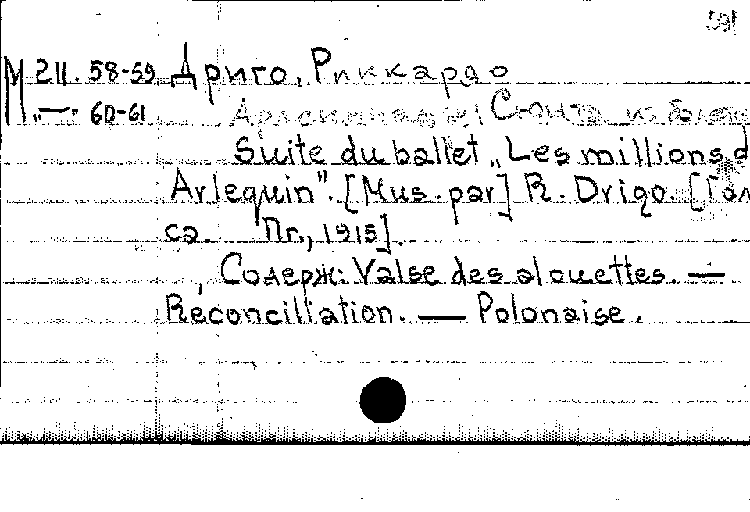 591
М 211.58-59 Дриго, Риккардо
„—" 60-61 Арлекинада: Сюита из балета
Suite du ballet „Les millions d
Arlequin". [Mus. par] R. Drigo. [Гол
са. Пг., 1915].
Содерж: Valse des alouettes. —
Reconciliation. — Polonaise.